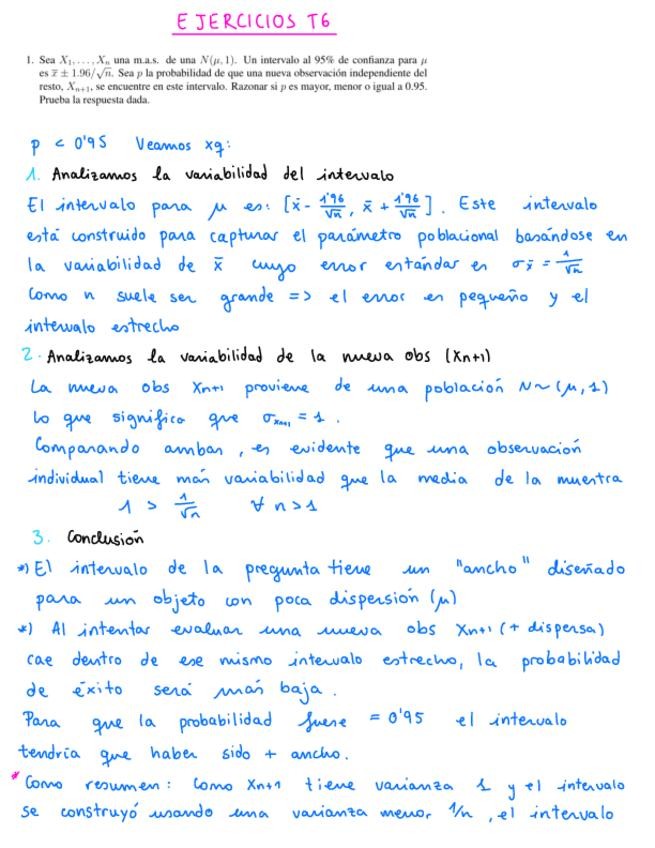 EJERCICIOS T6
1. Sea X₁, . . . , Xₙ una m.a.s. de una N(μ, 1). Un intervalo al 95% de confianza para μ
es x̅ ± 1.96/√n. Sea p la probabilidad de que una nueva observación independiente del
resto, Xₙ₊₁, se encuentre en este intervalo. Razonar si p es mayor, menor o igual a 0.95.
Prueba la respuesta dada.
p < 0'95 Veamos xq:
1. Analizamos la variabilidad del intervalo
El intervalo para μ es: [x̄ - 1'96/√n, x̄ + 1'96/√n]. Este intervalo
está construido para capturar el parámetro poblacional basándose en
la variabilidad de x̄ cuyo error estándar es σx̄ = 1/√n
Como n suele ser grande => el error es pequeño y el
intervalo estrecho
2. Analizamos la variabilidad de la nueva obs (Xn+1)
La nueva obs Xn+1 proviene de una población N~(μ,1)
lo que significa que σxn+1 = 1.
Comparando ambas, es evidente que una observación
individual tiene más variabilidad que la media de la muestra
1 > 1/√n ∀ n>1
3. Conclusión
*) El intervalo de la pregunta tiene un "ancho" diseñado
para un objeto con poca dispersión (μ)
*) Al intentar evaluar una nueva obs Xn+1 (+ dispersa)
cae dentro de ese mismo intervalo estrecho, la probabilidad
de éxito será más baja.
Para que la probabilidad fuese = 0'95 el intervalo
tendría que haber sido + ancho.
* Como resumen: Como Xn+1 tiene varianza 1 y el intervalo
se construyó usando una varianza menor, 1/n, el intervalo